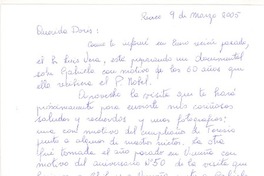 9 de Marzo 2005
Querida Doris:
Como le referí en Enero recién pasado,
el Sr. Luis Vera, está preparando un documental
sobre Gabriela con motivo de los 60 años que
ella recibiera el P. Nobel.
Aprovecho la visita que te hará
próximamente para enviarle mis cariñosos
saludos y recuerdos y unas fotografías:
una con motivo del cumpleaños de Teresa
junto a algunos de nuestros nietos, la otra
fué tomada el año pasado en Vicuña con
motivo del aniversario Nº 50 de la visita que